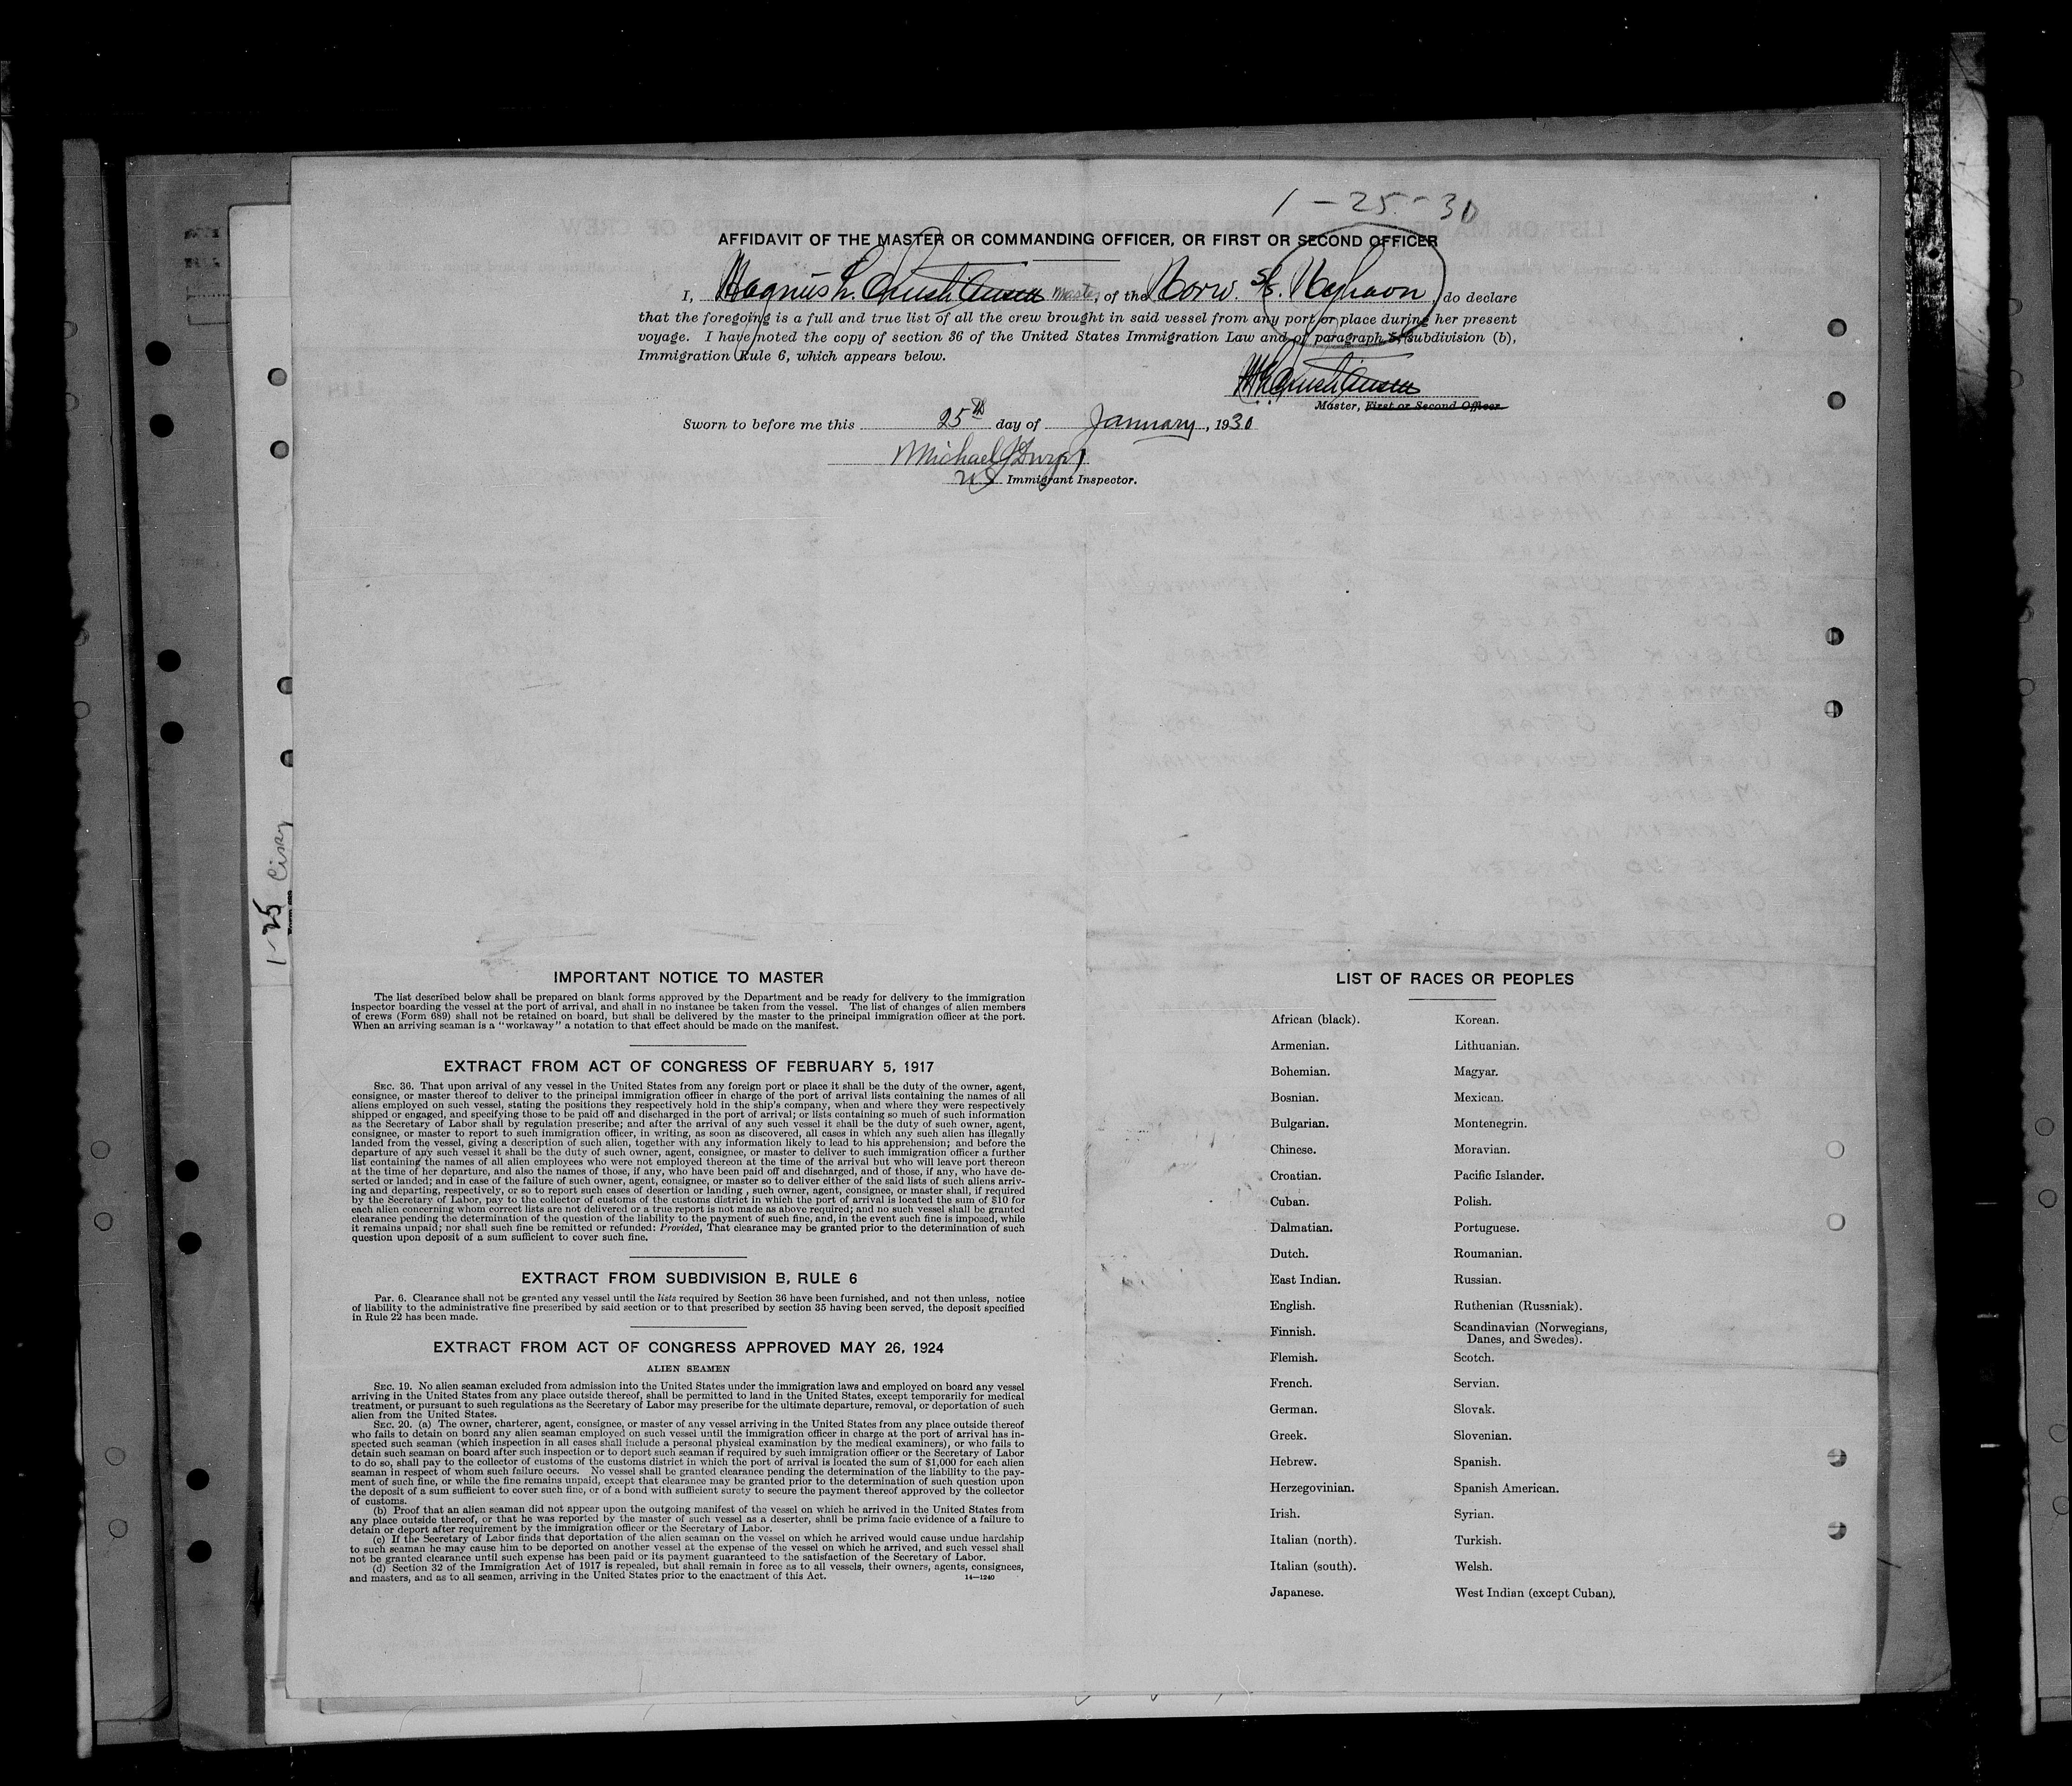 1-25-30
AFFIDAVIT OF THE MASTER OR COMMANDING OFFICER, OR FIRST OR SECOND OFFICER
I, Magnus L. Christiansen Master, of the Norw. S/S. , do declare
that the foregoing is a full and true list of all the crew brought in said vessel from any port or place during her present
voyage. I have noted the copy of section 36 of the United States Immigration Law and of paragraph 5, subdivision (b),
Immigration Rule 6, which appears below.
Master, First or Second Officer
Sworn to before me this 25th day of January, 1930
Michael
US Immigrant Inspector.
1-25
IMPORTANT NOTICE TO MASTER
The list described below shall be prepared on blank forms approved by the Department and be ready for delivery to the immigration
inspector boarding the vessel at the port of arrival, and shall in no instance be taken from the vessel. The list of changes of alien members
of crews (Form 689) shall not be retained on board, but shall be delivered by the master to the principal immigration officer at the port.
When an arriving seaman is a "workaway" a notation to that effect should be made on the manifest.
EXTRACT FROM ACT OF CONGRESS OF FEBRUARY 5, 1917
SEC. 36. That upon arrival of any vessel in the United States from any foreign port or place it shall be the duty of the owner, agent,
consignee, or master thereof to deliver to the principal immigration officer in charge of the port of arrival lists containing the names of all
aliens employed on such vessel, stating the positions they respectively hold in the ship's company, when and where they were respectively
shipped or engaged, and specifying those to be paid off and discharged in the port of arrival; or lists containing so much of such information
as the Secretary of Labor shall by regulation prescribe; and after the arrival of any such vessel it shall be the duty of such owner, agent,
consignee, or master to report to such immigration officer, in writing, as soon as discovered, all cases in which any such alien has illegally
landed from the vessel, giving a description of such alien, together with any information likely to lead to his apprehension; and before the
departure of any such vessel it shall be the duty of such owner, agent, consignee, or master to deliver to such immigration officer a further
list containing the names of all alien employees who were not employed thereon at the time of the arrival but who will leave port thereon
at the time of her departure, and also the names of those, if any, who have been paid off and discharged, and of those, if any, who have de-
serted or landed; and in case of the failure of such owner, agent, consignee, or master so to deliver either of the said lists of such aliens arriv-
ing and departing, respectively, or so to report such cases of desertion or landing , such owner, agent, consignee, or master shall, if required
by the Secretary of Labor, pay to the collector of customs of the customs district in which the port of arrival is located the sum of $10 for
each alien concerning whom correct lists are not delivered or a true report is not made as above required; and no such vessel shall be granted
clearance pending the determination of the question of the liability to the payment of such fine, and, in the event such fine is imposed, while
it remains unpaid; nor shall such fine be remitted or refunded: Provided, That clearance may be granted prior to the determination of such
question upon deposit of a sum sufficient to cover such fine.
EXTRACT FROM SUBDIVISION B, RULE 6
Par. 6. Clearance shall not be granted any vessel until the lists required by Section 36 have been furnished, and not then unless, notice
of liability to the administrative fine prescribed by said section or to that prescribed by section 35 having been served, the deposit specified
in Rule 22 has been made.
EXTRACT FROM ACT OF CONGRESS APPROVED MAY 26, 1924
ALIEN SEAMEN
SEC. 19. No alien seaman excluded from admission into the United States under the immigration laws and employed on board any vessel
arriving in the United States from any place outside thereof, shall be permitted to land in the United States, except temporarily for medical
treatment, or pursuant to such regulations as the Secretary of Labor may prescribe for the ultimate departure, removal, or deportation of such
alien from the United States.
SEC. 20. (a) The owner, charterer, agent, consignee, or master of any vessel arriving in the United States from any place outside thereof
who fails to detain on board any alien seaman employed on such vessel until the immigration officer in charge at the port of arrival has in-
spected such seaman (which inspection in all cases shall include a personal physical examination by the medical examiners), or who fails to
detain such seaman on board after such inspection or to deport such seaman if required by such immigration officer or the Secretary of Labor
to do so, shall pay to the collector of customs of the customs district in which the port of arrival is located the sum of $1,000 for each alien
seaman in respect of whom such failure occurs. No vessel shall be granted clearance pending the determination of the liability to the pay-
ment of such fine, or while the fine remains unpaid, except that clearance may be granted prior to the determination of such question upon
the deposit of a sum sufficient to cover such fine, or of a bond with sufficient surety to secure the payment thereof approved by the collector
of customs.
(b) Proof that an alien seaman did not appear upon the outgoing manifest of the vessel on which he arrived in the United States from
any place outside thereof, or that he was reported by the master of such vessel as a deserter, shall be prima facie evidence of a failure to
detain or deport after requirement by the immigration officer or the Secretary of Labor.
(c) If the Secretary of Labor finds that deportation of the alien seaman on the vessel on which he arrived would cause undue hardship
to such seaman he may cause him to be deported on another vessel at the expense of the vessel on which he arrived, and such vessel shall
not be granted clearance until such expense has been paid or its payment guaranteed to the satisfaction of the Secretary of Labor.
(d) Section 32 of the Immigration Act of 1917 is repealed, but shall remain in force as to all vessels, their owners, agents, consignees,
and masters, and as to all seamen, arriving in the United States prior to the enactment of this Act.
14—1240
LIST OF RACES OR PEOPLES
African (black).
Armenian.
Bohemian.
Bosnian.
Bulgarian.
Chinese.
Croatian.
Cuban.
Dalmatian.
Dutch.
East Indian.
English.
Finnish.
Flemish.
French.
German.
Greek.
Hebrew.
Herzegovinian.
Irish.
Italian (north).
Italian (south).
Japanese.
Korean.
Lithuanian.
Magyar.
Mexican.
Montenegrin.
Moravian.
Pacific Islander.
Polish.
Portuguese.
Roumanian.
Russian.
Ruthenian (Russniak).
Scandinavian (Norwegians,
Danes, and Swedes).
Scotch.
Servian.
Slovak.
Slovenian.
Spanish.
Spanish American.
Syrian.
Turkish.
Welsh.
West Indian (except Cuban).